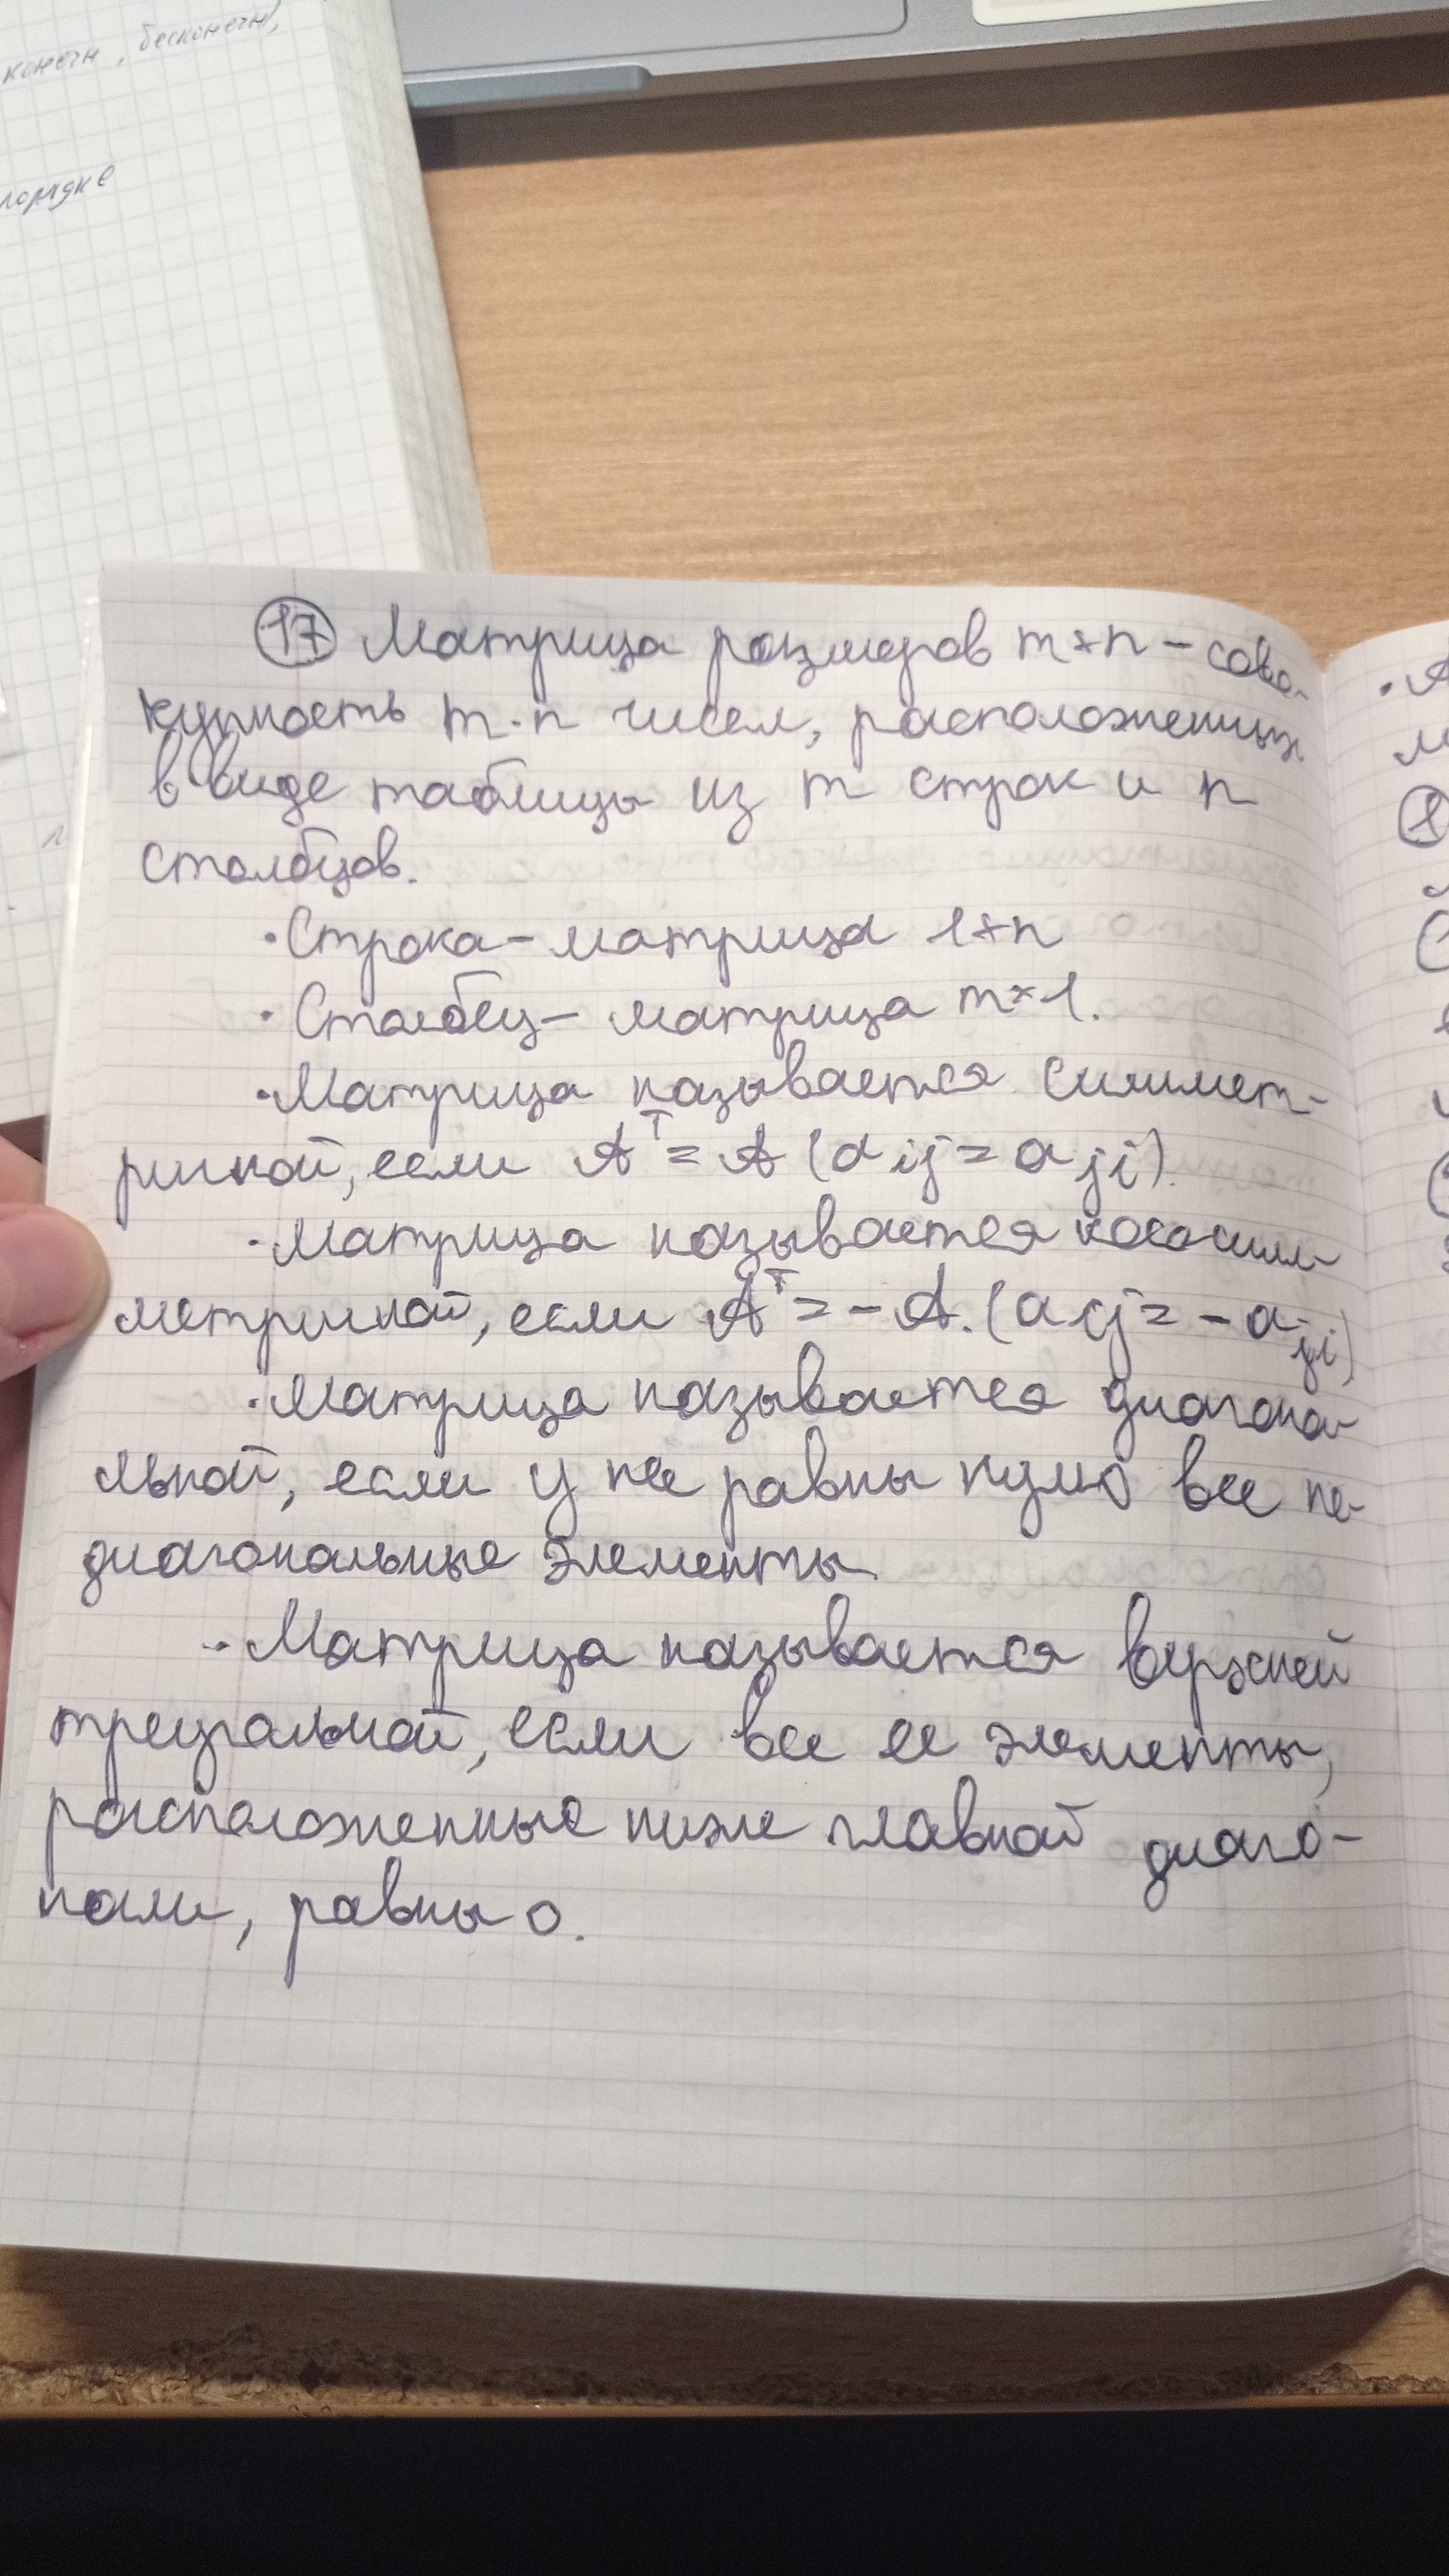 конечн, бесконечн,
порядке
17 Матрица размеров m×n – сово-
купность m·n чисел, расположенных
в виде таблицы из m строк и n
столбцов.
· Строка – матрица 1×n
· Столбец – матрица m×1.
· Матрица называется симмет-
ричной, если Aᵀ = A (aij = aji).
· Матрица называется кососим-
метричной, если Aᵀ = –A. (aij = –aji)
· Матрица называется диагона-
льной, если у нее равны нулю все не-
диагональные элементы
· Матрица называется верхней
треугальной, если все ее элементы,
расположенные ниже главной диаго-
нали, равны 0.